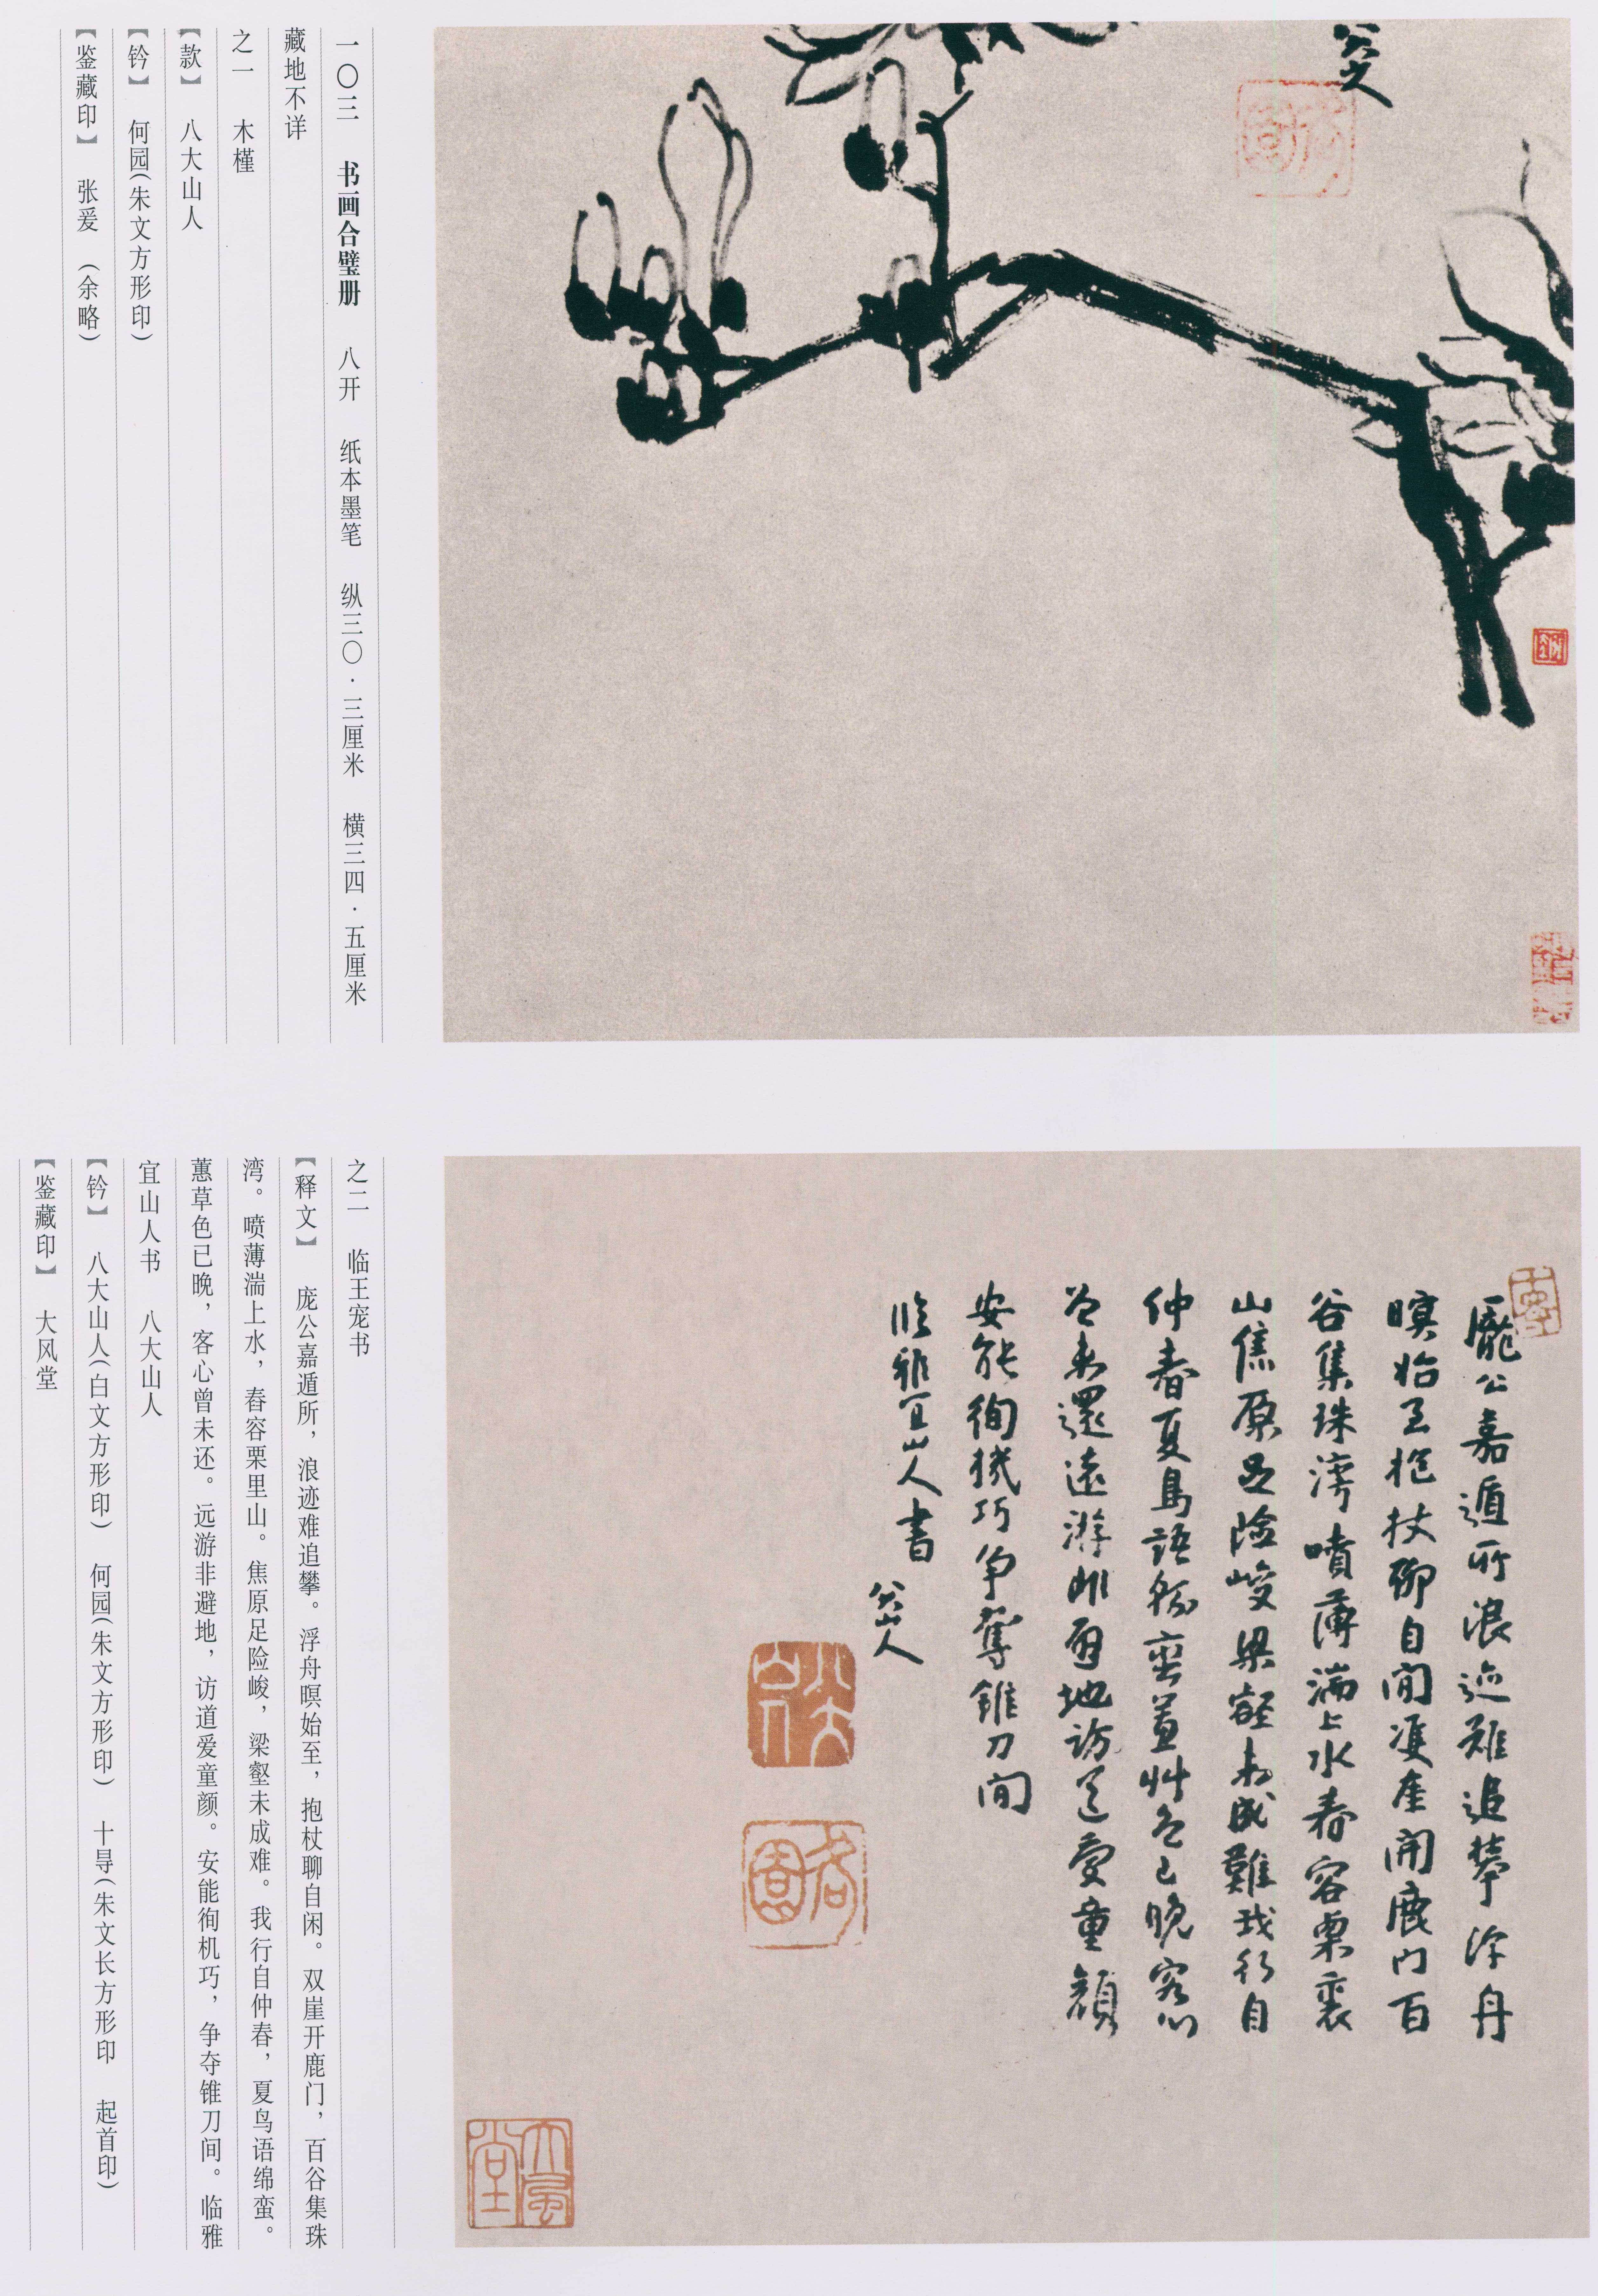 八大山人
一〇三 书画合璧册 八开 纸本墨笔 纵三〇·三厘米 横三四·五厘米
藏地不详
之一 木槿
【款】 八大山人
【钤】 何园(朱文方形印)
【鉴藏印】 张爰 (余略)
龐公嘉遁所浪迹難追攀浮舟
暝始至抱杖聊自閒雙崖開鹿门百
谷集珠灣噴薄湍上水春容栗裏
山焦原足险峻梁壑未成難我行自
仲春夏鳥語緜蛮蕙艸色已晚客心
曾未還遠游非避地訪道愛童顔
安能徇機巧争奪錐刀间
临雅宜山人書 八大山人
八大山人
何園
大風堂
之二 临王宠书
【释文】 庞公嘉遁所，浪迹难追攀。浮舟暝始至，抱杖聊自闲。双崖开鹿门，百谷集珠
湾。喷薄湍上水，春容栗里山。焦原足险峻，梁壑未成难。我行自仲春，夏鸟语绵蛮。
蕙草色已晚，客心曾未还。远游非避地，访道爱童颜。安能徇机巧，争夺锥刀间。临雅
宜山人书 八大山人
【钤】 八大山人(白文方形印) 何园(朱文方形印) 十㝵(朱文长方形印 起首印)
【鉴藏印】 大风堂